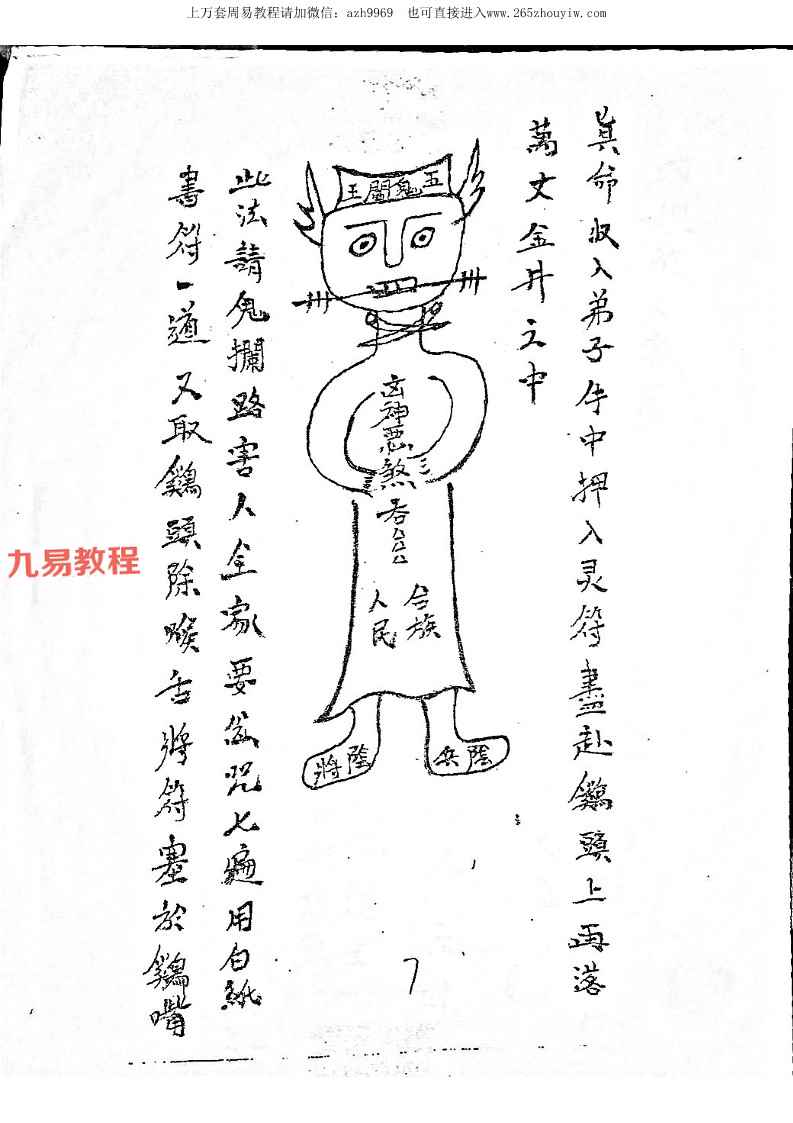 上万套周易教程请加微信：azh9969　也可直接进入www.265zhouyiw.com
真命收入弟子牛中押入灵符盡赴鷄頭上再落
萬丈金井之中
五鬼閻王
凶神惡煞吞
合族
人民
陰兵
陰將
此法請鬼攔路害人全家要念咒七遍用白紙
書符一道又取鷄頭除喉舌將符塞於鷄嘴
九易教程
7